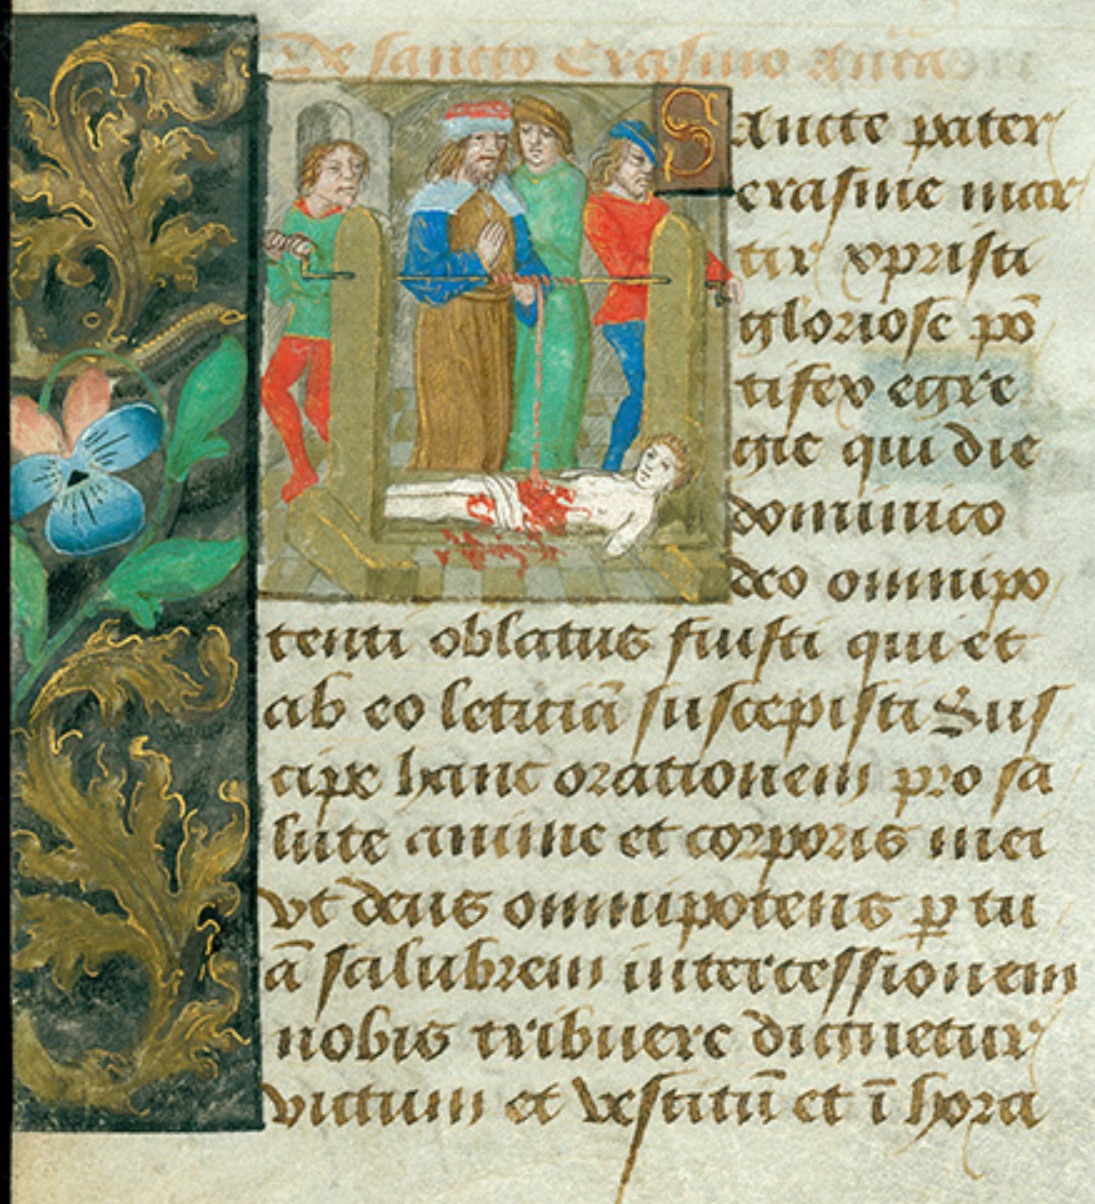 De sancto Erasmo Antã
Sancte pater
erasme mar
tir xpristi
gloriose põ
tifex egre
gie qui die
dominico
deo omnipo
tenti oblatus fuisti qui et
ab eo leticiã suscepisti Sus
cipe hanc orationem pro sa
lute anime et corporis mei
vt deus omnipotens ꝑ tu
ã salubrem intercessionem
nobis tribuere dignetur
victum et vestitũ et ĩ hora